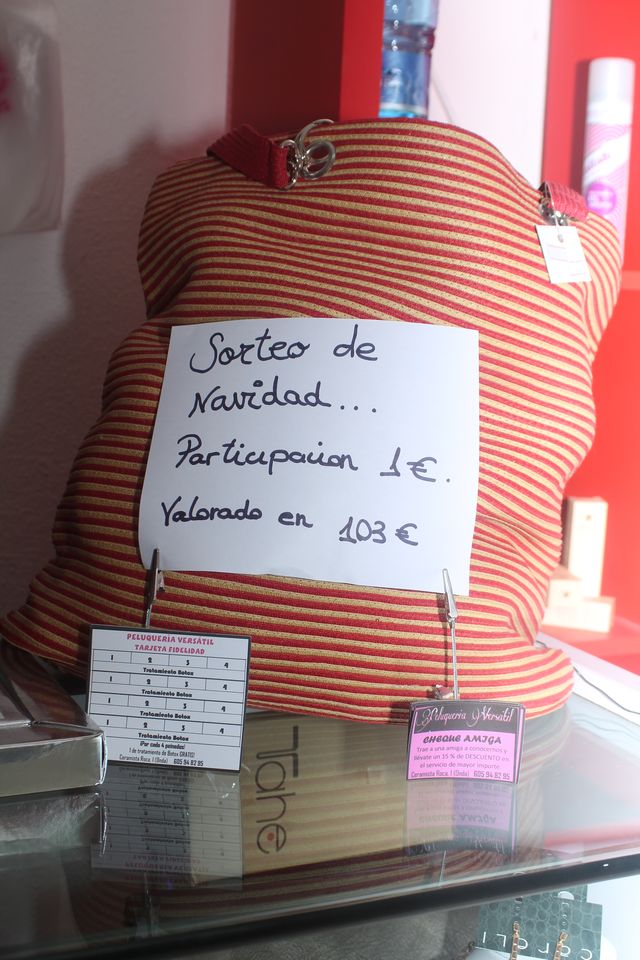 Sorteo de
Navidad...
Participacion 1€.
Valorado en 103€
PELUQUERIA VERSÀTIL
TARJETA FIDELIDAD
1 2 3 4
Tratamiento Botox
1 2 3 4
Tratamiento Botox
1 2 3 4
Tratamiento Botox
1 2 3 4
Tratamiento Botox
¡Por cada 4 peinados!
1 de tratamiento de Botox GRATIS!
Ceramista Roca, 1 (Onda) 605 94 82 95
Peluqueria Versàtil
CHEQUE AMIGA
Trae a una amiga a conocernos y
llévate un 15 % de DESCUENTO en
el servicio de mayor importe
Ceramista Roca, 1 (Onda) 605 94 82 95
Tahe